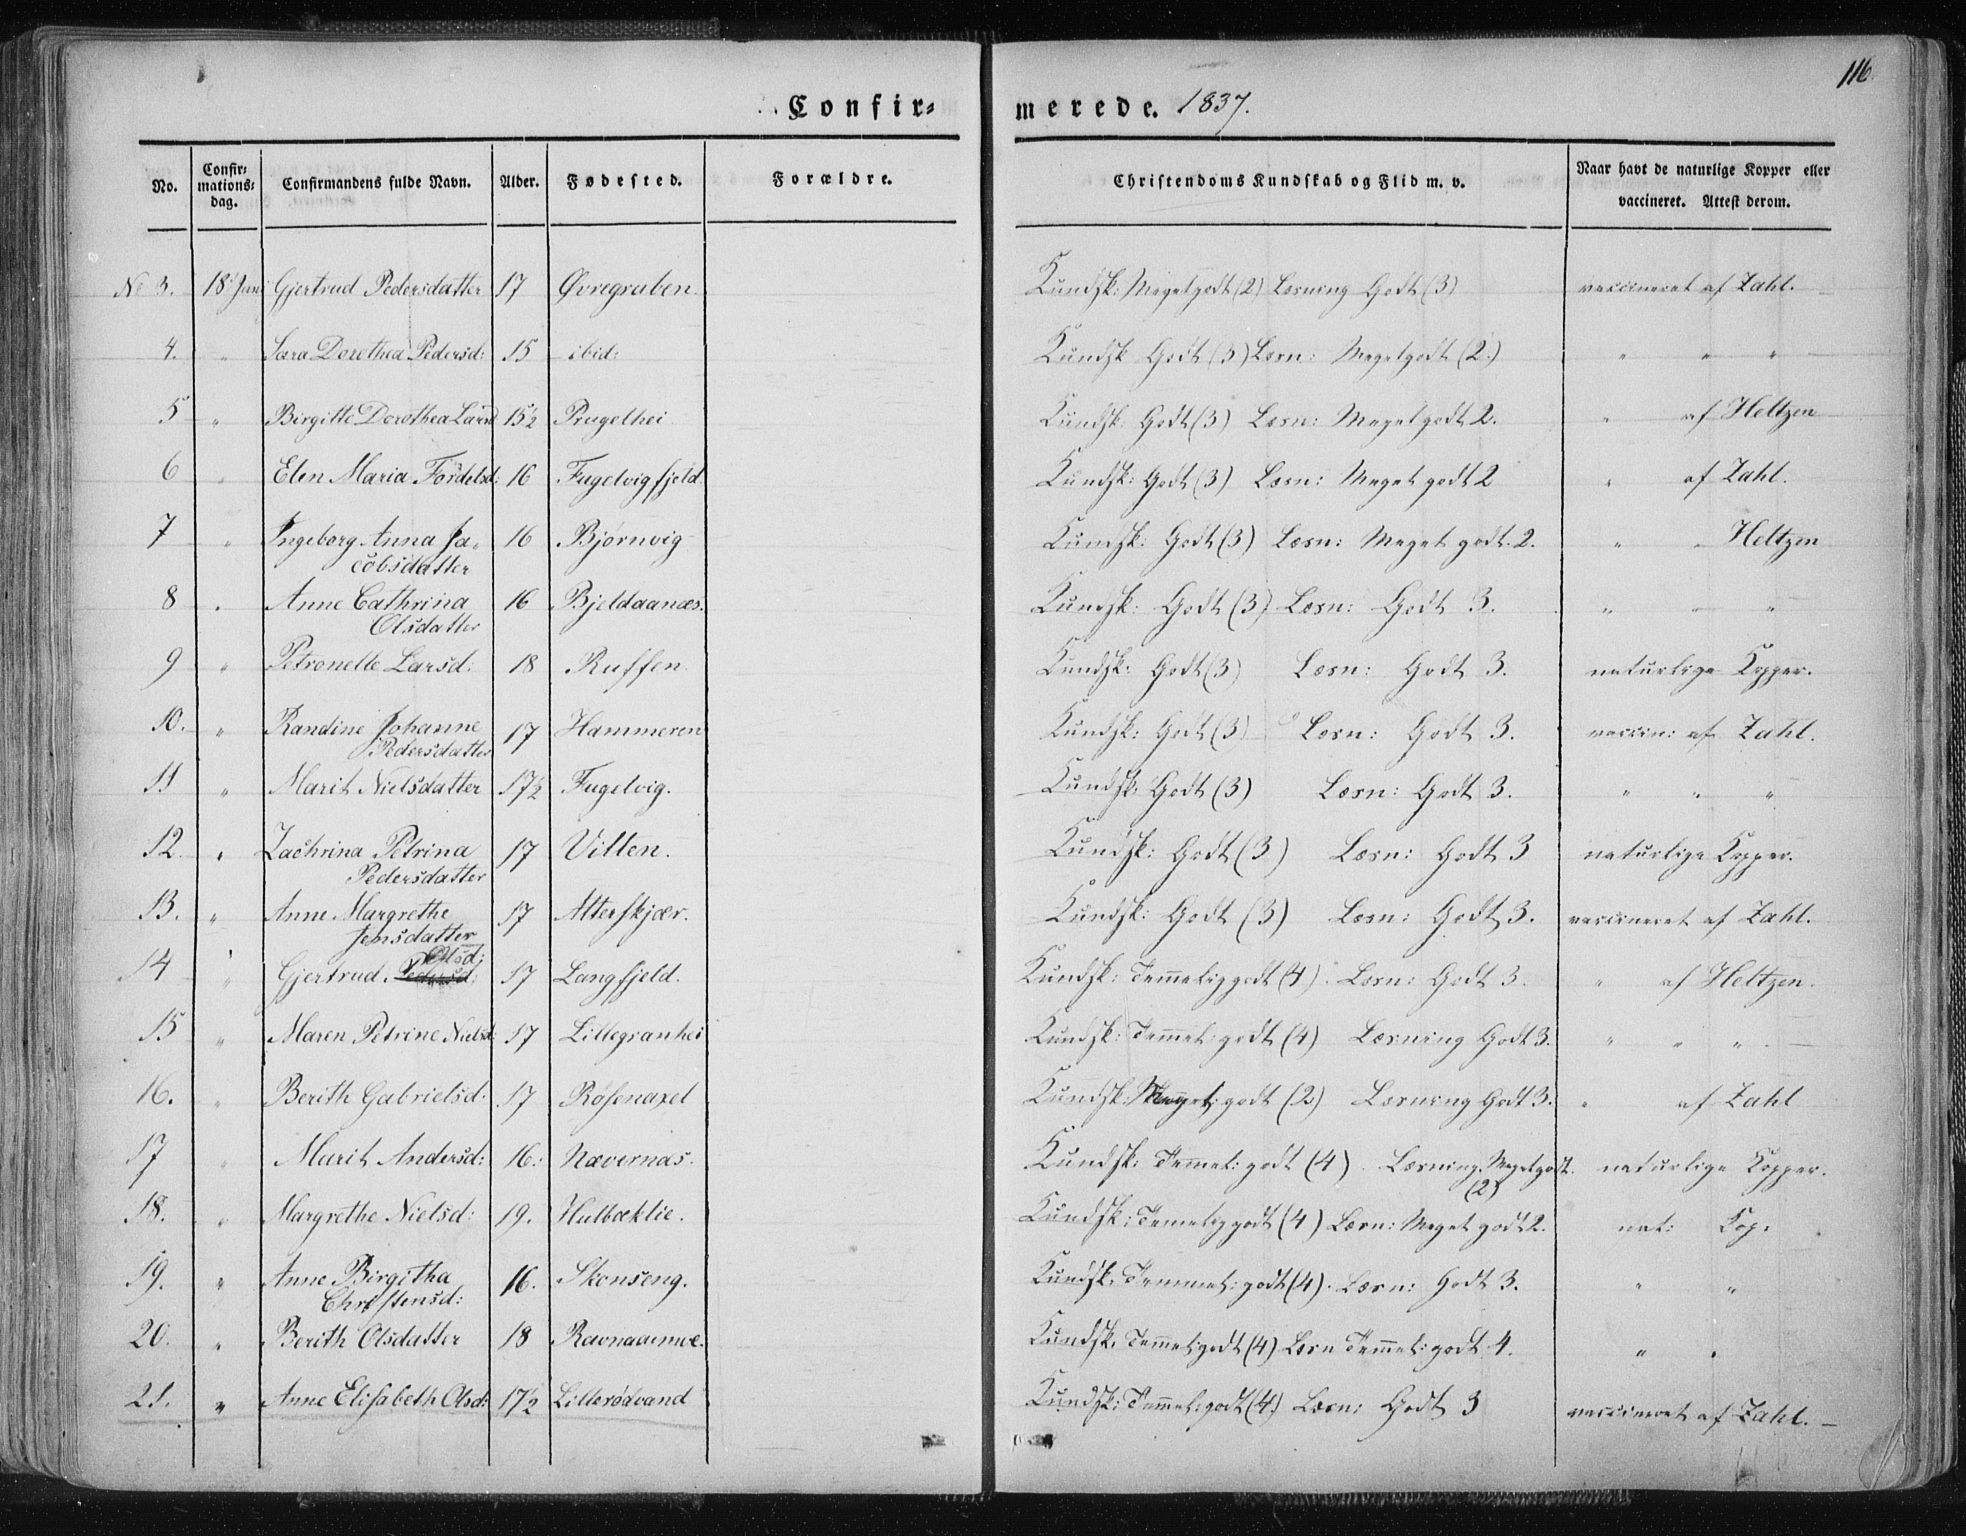 116.
Confir= merede. 1837.
No. Confir= mations= dag. Confirmandens fulde Navn. Alder. Fødested. Forældre. Christendoms Kundskab og Flid m. v. Naar havt de naturlige Kopper eller vaccineret. Attest derom.
No 3. 18 Juni Gjertrud Pedersdatter 17 Øvregraben. Kundsk: Megetgodt (2) Læsning Godt (3) vaccineret af Zahl.
4. " Sara Dorothea Pedersd: 15 ibid: Kundsk Godt (3) Læsn: Megetgodt (2.) " " "
5 " Birgitte Dorothea Larsd 15½ Prugelhei Kundsk: Godt (3) Læsn: Meget godt 2. " af Heltzen
6 " Elen Maria Fördelsd: 16 Fugelvigfjeld. Kundsk: Godt (3) Læsn: Meget godt 2 " af Zahl.
7 " Ingeborg Anna Ja=
cobsdatter 16 Bjørnvig Kundsk: Godt (3) Læsn: Meget godt. 2. " " Heltzen
8 " Anne Cathrina
Olsdatter 16 Bjeldaanæs. Kundsk: Godt (3) Læsn: Godt 3. " " "
9 " Petronelle Larsd: 18 Ruffen. Kundsk: Godt (3) Læsn: Godt 3. naturlige Kopper.
10. " Randine Johanne
Pedersdatter 17 Hammeren Kundsk: Godt (3) Læsn: Godt 3. vaccin: af Zahl.
11 " Marit Nielsdatter 17½ Fugelvig. Kundsk: Godt (3) Læsn: Godt 3. " " "
12. " Zachrina Petrina
Pedersdatter 17 Vilten. Kundsk: Godt (3) Læsn: Godt 3 naturlige Kopper.
13. " Anne Margrethe
Jensdatter 17 Alterskjær. Kundsk: Godt (3) Læsn: Godt 3. vaccineret af Zahl.
Olsd:
14 " Gjertrud Pedersd: 17 Langfjeld. Kundsk: Temmeliggodt (4). Læsn: Godt 3. " af Heltzen.
15 " Maren Petrine Nielsd: 17 Lillegranhei Kundsk: Temmel: godt (4) Læsning Godt 3. " " "
16. " Berith Gabrielsd. 17 Røsenaxel Kundsk: Meget godt (2) Læsning Godt 3. " af Zahl
17 " Marit Andersd: 16. Nævernæs. Kundsk: Temmel: godt (4). Læsning. Megetgodt.
(2) naturlige Kopper.
18. " Margrethe Nielsd: 19. Hulbæklie. Kundsk: Temeliggodt (4) Læsn: Meget godt 2. nat: Kop.
19. " Anne Birgitha
Christensd: 16. Skonseng. Kundsk. Temmel: godt (4). Læsn: Godt 3. " "
20. " Berith Olsdatter 18 Kundsk. Temmel: godt (4) Læsn Temmel: godt 4. " "
21. " Anne Elisabeth Olsd: 17½ Lillerødvand Kundsk: Temmel: godt (4.) Læsn: Godt 3 vaccineret af Zahl.